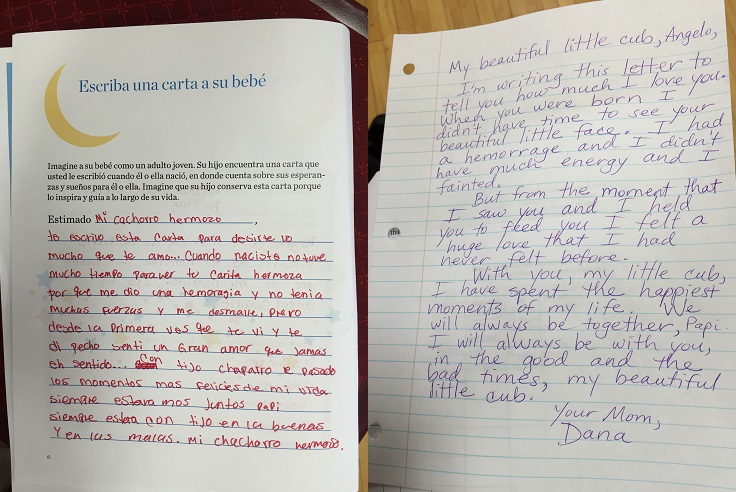 Escriba una carta a su bebé
Imagine a su bebé como un adulto joven. Su hijo encuentra una carta que
usted le escribió cuando él o ella nació, en donde cuenta sobre sus esperan-
zas y sueños para él o ella. Imagine que su hijo conserva esta carta porque
lo inspira y guía a lo largo de su vida.
Estimado Mi cachorro hermozo,
te escrivo esta carta para desirte lo
mucho que te amo... cuando naciste no tuve
mucho tiempo para ver tu carita hermoza
por que me dio una hemoragia y no tenia
muchas fuerzas y me desmalle, pero
desde la primera ves que te vi y te
di pecho senti un Gran amor que jamas
eh sentido... con tijo chaparro e pasado
los momentos mas felicies de mi vida
siempre estara mos juntos papi
siempre estara con tijo en la buenas
y en las malas. Mi chachorro hermoso.
6
My beautiful little cub, Angelo,
I'm writing this letter to
tell you how much I love you.
When you were born I
didn't have time to see your
beautiful little face. I had
a hemorrage and I didn't
have much energy and I
fainted.
But from the moment that
I saw you and I held
you to feed you I felt a
huge love that I had
never felt before.
With you, my little cub,
I have spent the happiest
moments of my life. We
will always be together, Papi.
I will always be with you,
in the good and the
bad times, my beautiful
little cub.
Your Mom,
Dana